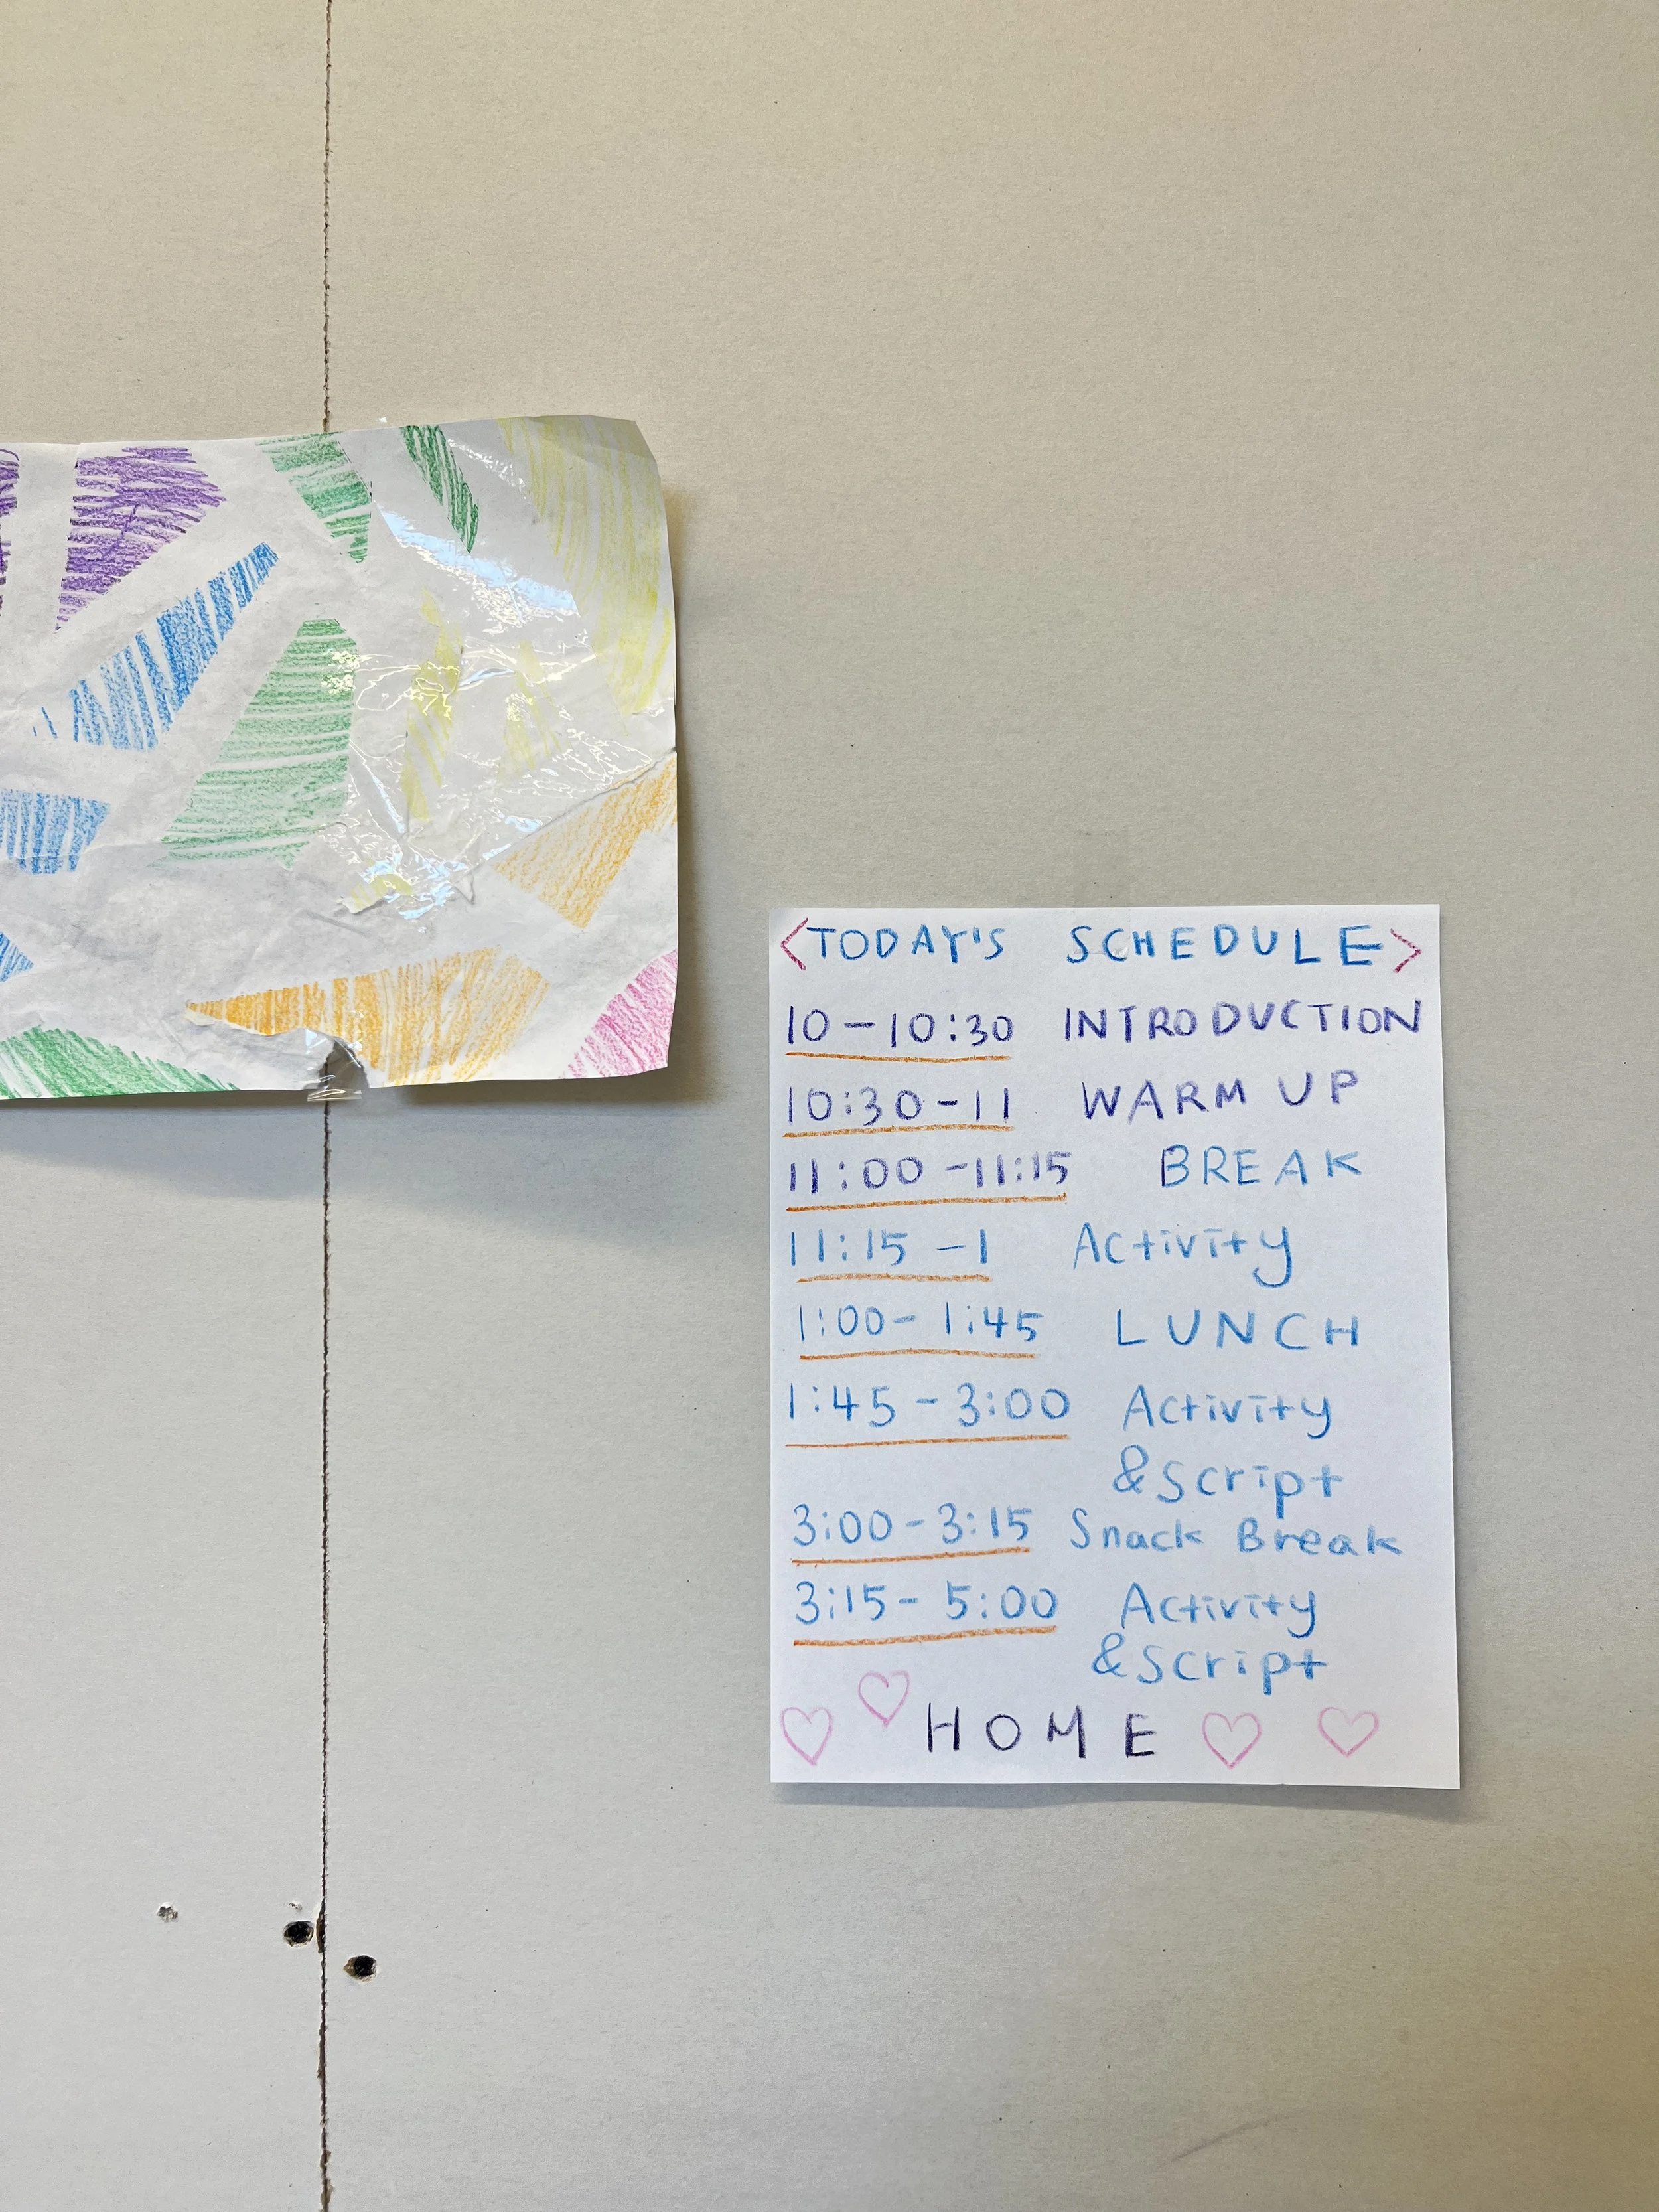 <TODAY'S SCHEDULE>
10-10:30 INTRODUCTION
10:30-11 WARM UP
11:00-11:15 BREAK
11:15-1 Activity
1:00-1:45 LUNCH
1:45-3:00 Activity
&Script
3:00-3:15 Snack Break
3:15-5:00 Activity
&Script
HOME